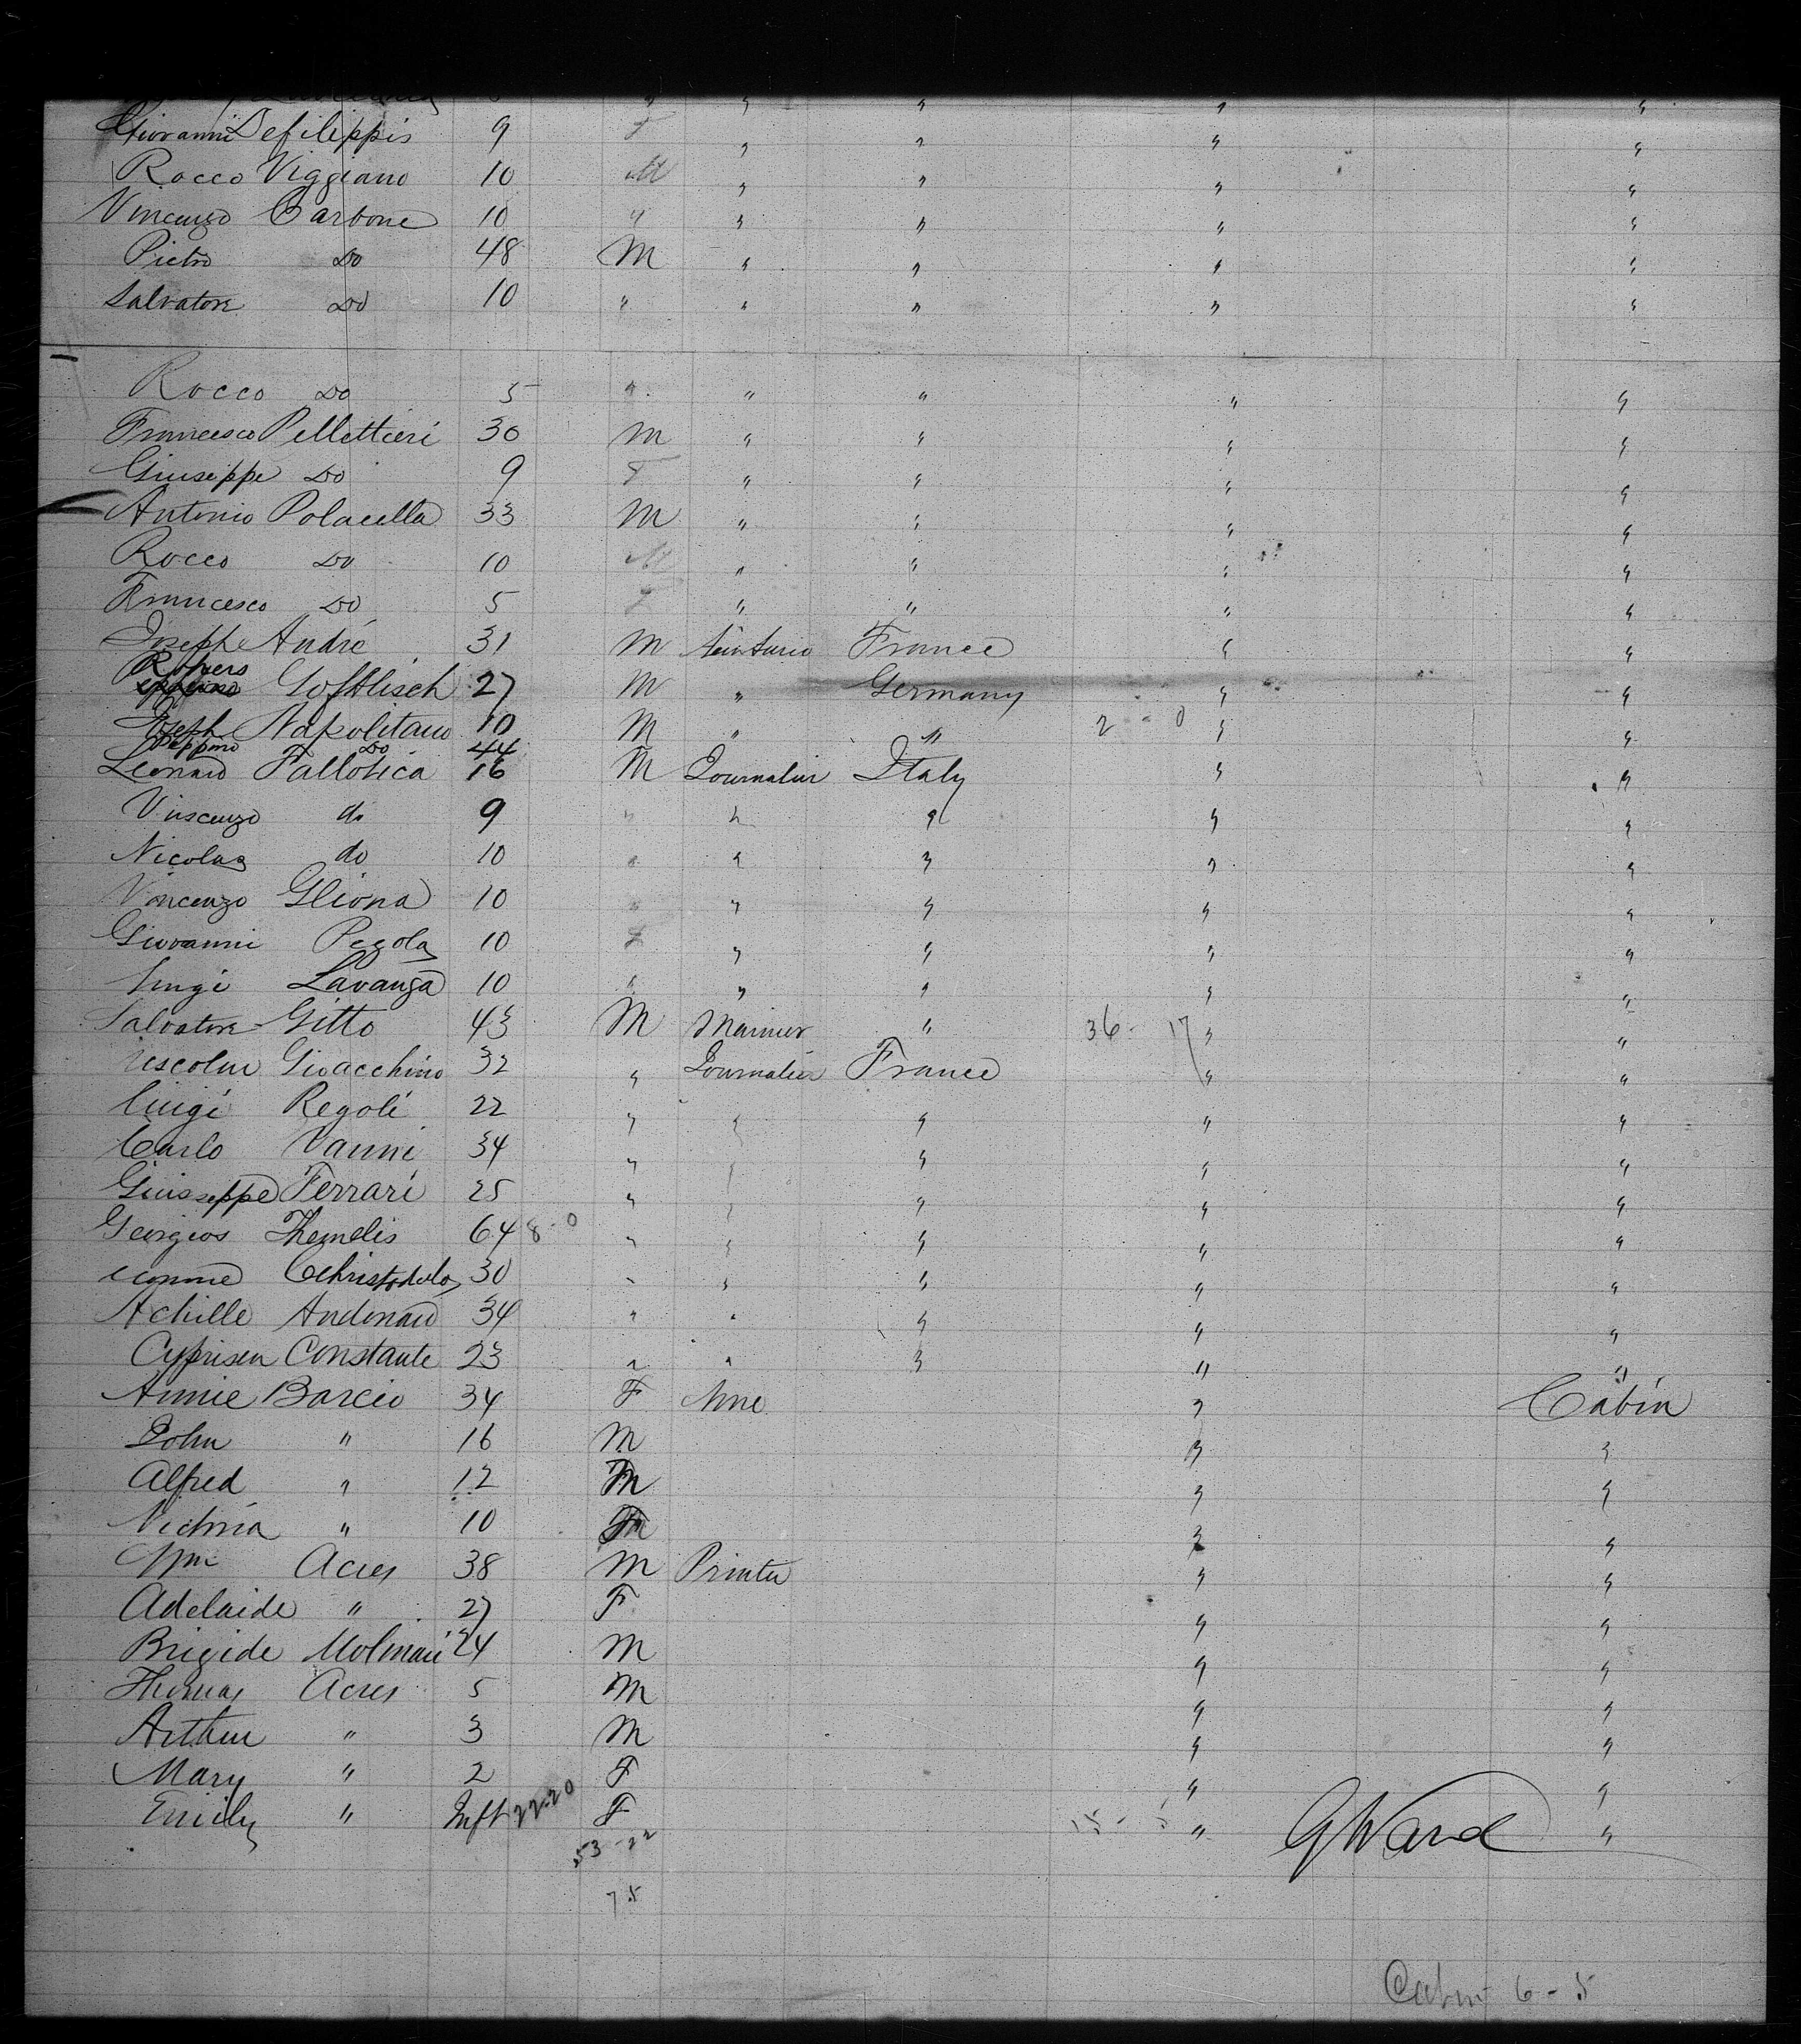 Giovanni Defilippis 9 F " " " "
Rocco Viggiano 10 M " " " "
Vincenzo Carbone 10 " " " " "
Pietro Do 48 M " " " "
Salvatore Do 10 " " " " "
Rocco Do 5 " " " " "
Francesco Pellettieri 30 M " " " "
Giuseppe Do 9 F " " " "
Antonio Polacella 33 M " " " "
Rocco Do 10 M " " " "
Francesco Do 5 F " " " "
Joseph André 31 M France " "
Goftlisch 27 M " Germany " "
Joseph Napolitano 10 M " " 2 - 0 " "
Peppino Do 44
Leonard Pallotica 16 M Journalier Italy " "
Vinscenzo do 9 " " " " "
Nicolas do 10 " " " " "
Vincenzo Gliona 10 " " " " "
Giovanni Pegola 10 F " " " "
Luigi Lavanga 10 " " " " "
Salvatore Gitto 43 M Marinier " 36 - 17 " "
Gioacchino 32 " Journalier France " "
Luigi Regoli 22 " " " " "
Carlo Vanni 34 " " " " "
Giusseppe Ferrari 25 " " " " "
Georgios Themelis 64 8-0 " " " " "
Christodulo 30 " " " " "
Achille Andenard 34 " " " " "
Cyprisen Constante 23 " " " " "
Annie Barcio 34 F None " Cabin
John " 16 M " "
Alfred " 12 M " "
Victoria " 10 F " "
Wm Acres 38 M Printer " "
Adelaide " 27 F " "
Brigide Molinari 24 M " "
Thomas Acres 5 M " "
Arthur " 3 M " "
Mary " 2 F " "
Emily " Inft 22-20 F " "
GWard
53-22
75
Cabin 6-5